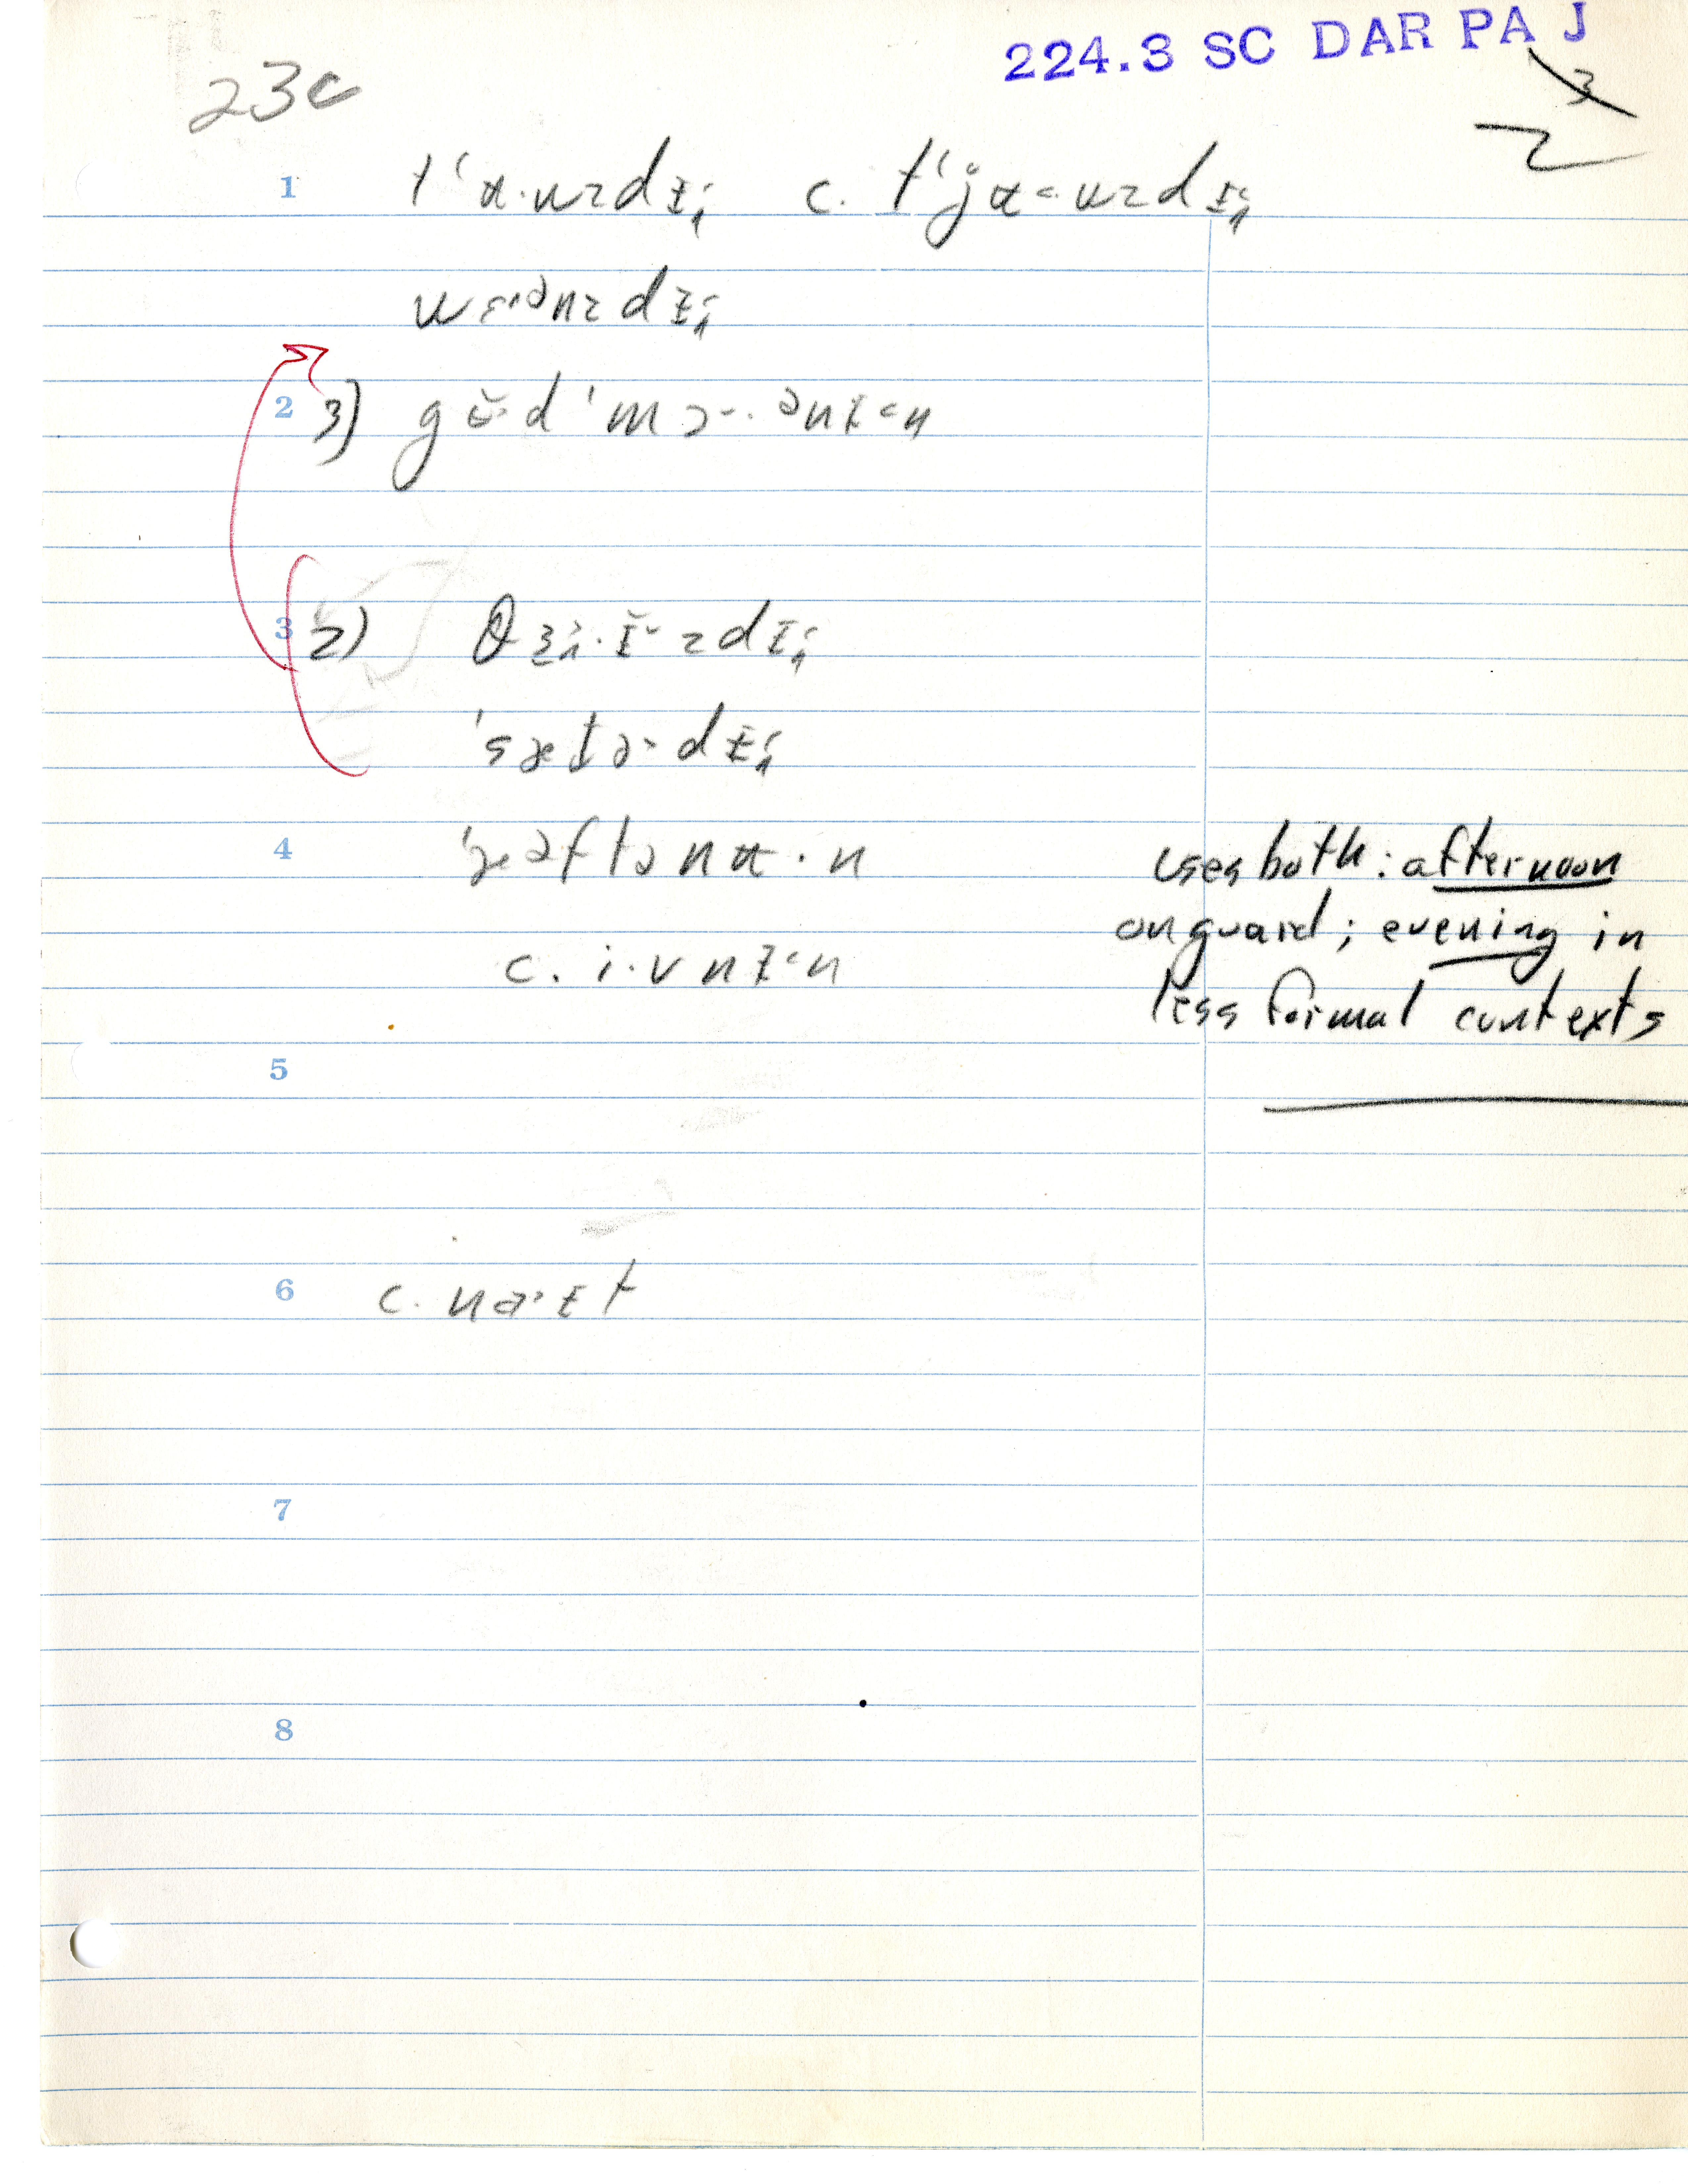 224.3 SC DAR PA J
23c
3
2
1 tʻʉ·uzdɪ c. tʻjʉ·uzdɪ
wɛ·ənzdɪ
2 3) gʊ·d ˈmɔ·ənɪ·n
3 2) θɜ·ɪzdɪ
ˈsætə·dɪ
4 ˈæəftənʉ·n
uses both: afternoon
on guard; evening in
less formal contexts
c. i·vnɪ·n
5
6 c. na·ɪt
7
8